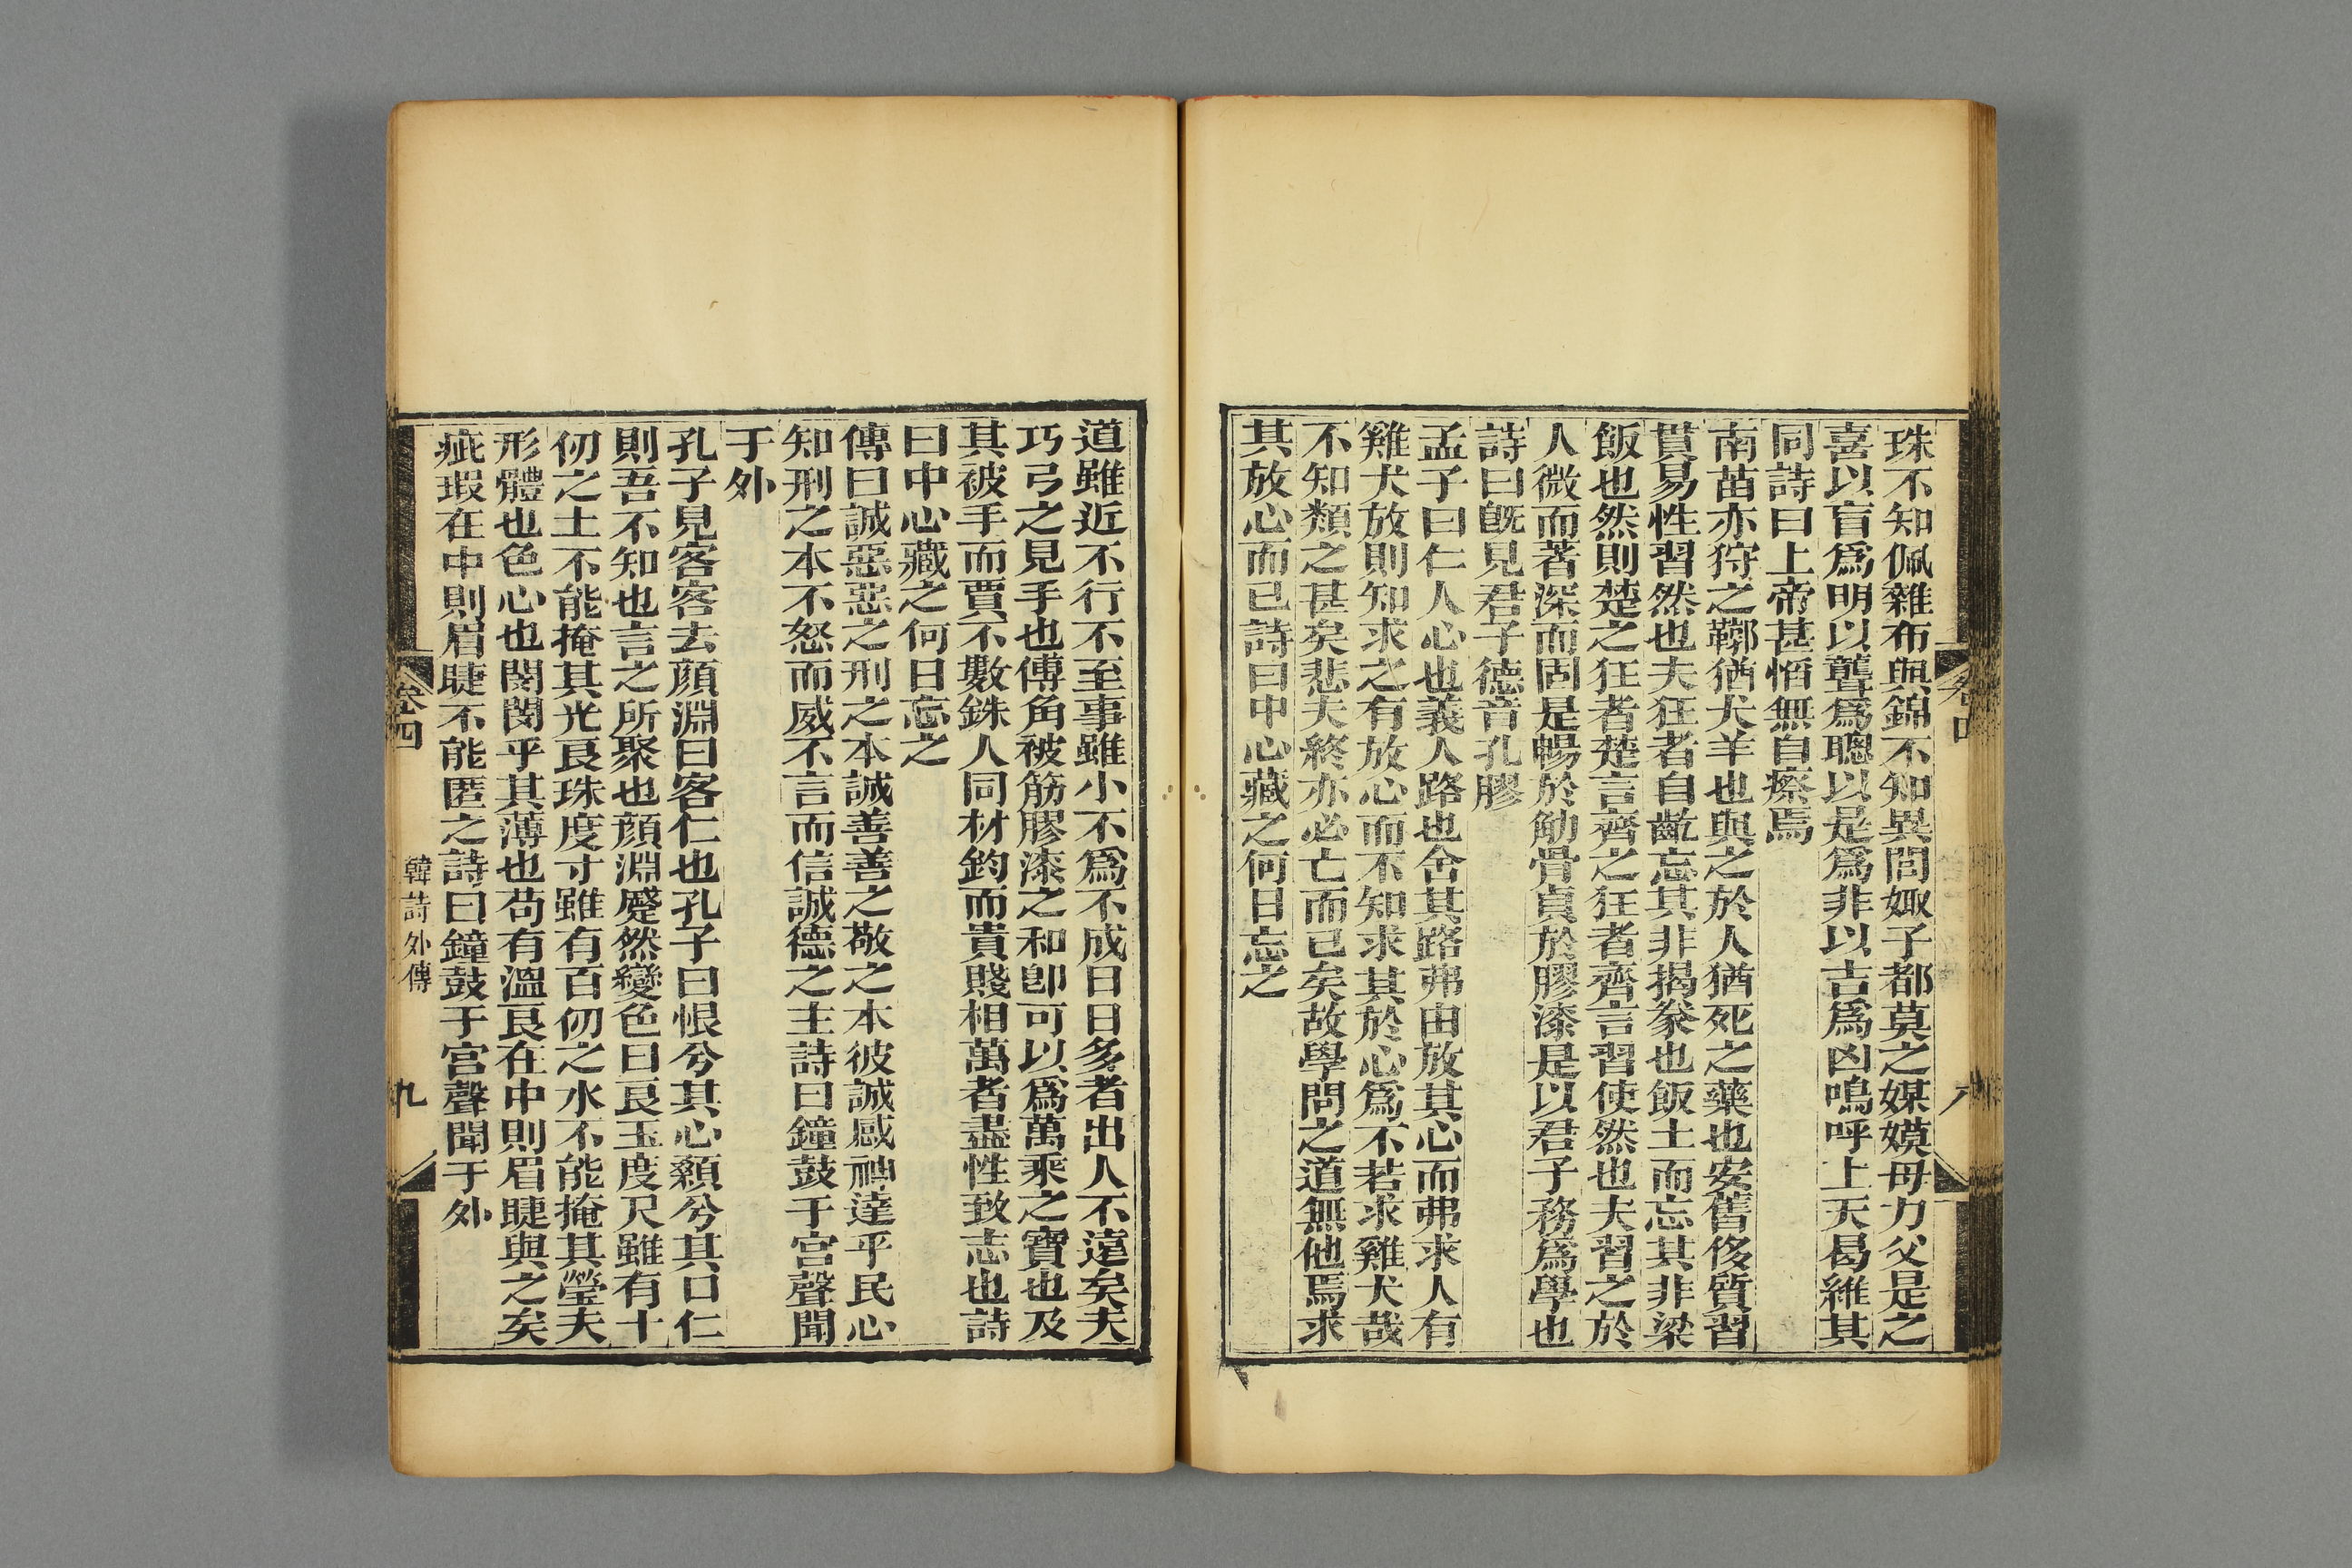 珠不知佩雜布與錦不知異閭娵子都莫之媒嫫母力父是之
喜以盲爲明以聾爲聰以是爲非以吉爲凶嗚呼上天曷維其
同詩曰上帝甚慆無自瘵焉
南苗亦狩之鞹猶犬羊也與之於人猶死之藥也安舊侈質習
貫易性習然也夫狂者自齕忘其非揭豢也飯土而忘其非梁
飯也然則楚之狂者楚言齊之狂者齊言習使然也夫習之於
人微而著深而固是暢於觔骨貞於膠漆是以君子務爲學也
詩曰旣見君子德音孔膠
孟子曰仁人心也義人路也舍其路弗由放其心而弗求人有
雞犬放則知求之有放心而不知求其於心爲不若求雞犬哉
不知類之甚矣悲夫終亦必亡而已矣故學問之道無他焉求
其放心而已詩曰中心藏之何日忘之
卷四
八
道雖近不行不至事雖小不爲不成日日多者出人不遠矣夫
巧弓之見手也傅角被筋膠漆之和卽可以爲萬乘之寶也及
其被手而賈不數銖人同材鈞而貴賤相萬者盡性致志也詩
曰中心藏之何日忘之
傳曰誠惡惡之刑之本誠善善之敬之本彼誠感神達乎民心
知刑之本不怒而威不言而信誠德之主詩曰鐘鼓于宮聲聞
于外
孔子見客客去顔淵曰客仁也孔子曰恨兮其心顙兮其口仁
則吾不知也言之所聚也顔淵蹙然變色曰良玉度尺雖有十
仞之土不能掩其光良珠度寸雖有百仞之水不能掩其瑩夫
形體也色心也閔閔乎其薄也苟有溫良在中則眉睫與之矣
疵瑕在中則眉睫不能匿之詩曰鐘鼓于宮聲聞于外
卷四
韓詩外傳
九